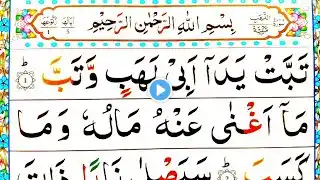 بِسْمِ اللهِ الرَّحْمٰنِ الرَّحِيْمِ
تَبَّتْ يَدَاۤ اَبِیْ لَهَبٍ وَّتَبَّ ؕ ۝١
مَاۤ اَغْنٰی عَنْهُ مَالُهٗ وَمَا
كَسَبَ ؕ سَيَصْلٰی نَارًا ذَاتَ